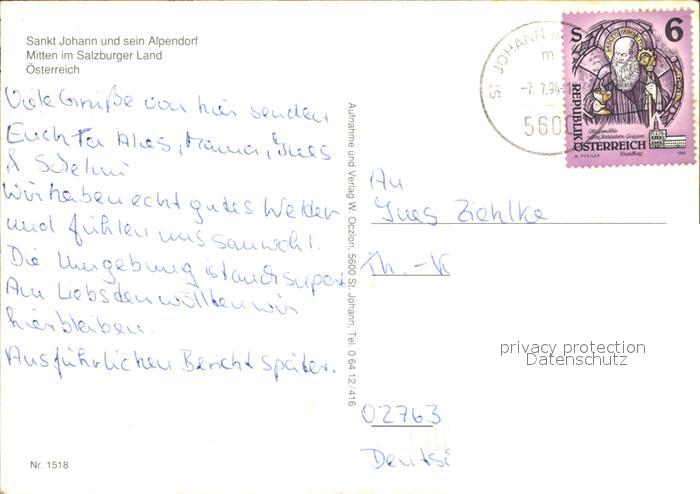 Sankt Johann und sein Alpendorf
Mitten im Salzburger Land
Österreich
Viele Grüße von hier senden
Euch Mama, Ines
&
Wir haben echt gutes Wetter
und fühlen uns sauwohl.
Die Umgebung ist auch super.
Am Liebsden wöllten wir
hierbleiben.
Ausführlichen Bericht später.
Nr. 1518
Aufnahme und Verlag W. Oczlon, 5600 St. Johann, Tel. 0 64 12 / 416
ST. JOHANN
m
-7. 7.94-1
560
S 6
REPUBLIK
ÖSTERREICH
1993
An
Ines Ziehlke
Th.-K
privacy protection
Datenschutz
02763
Deutsc